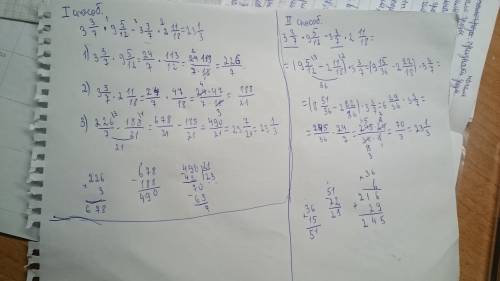 I способ.
3 3/7 · 9 5/12 - 3 3/7 · 2 11/18 = 23 1/3
1) 3 3/7 · 9 5/12 = 24/7 · 113/12 = 226/7
2) 3 3/7 · 2 11/18 = 24/7 · 47/18 = 188/21
3) 226/7 - 188/21 = 678/21 - 188/21 = 490/21 = 23 7/21 = 23 1/3
226
× 3
678
- 678
188
490
490 21
23
70
- 63
7
II способ.
3 3/7 · 9 5/12 - 3 3/7 · 2 11/18 =
= (9 5/12 - 2 11/18) · 3 3/7 = (9 15/36 - 2 22/36) · 3 3/7 =
= (8 51/36 - 2 22/36) · 3 3/7 = 6 29/36 · 3 3/7 =
= 245/36 · 24/7 = 70/3 = 23 1/3
36
+ 15
51
51
22
29
× 36
6
216
+ 29
245